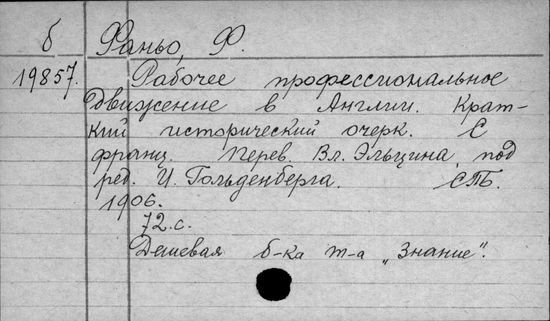 б Фаньо, Ф.
19857. Рабочее профессиональное
движение в Англии. Крат-
кий исторический очерк. С
франц. Перев. Вл. Эльцина, под
ред. И. Гольденберга. СПБ.
1906.
72.с.
Дешевая б-ка т-а „Знание".